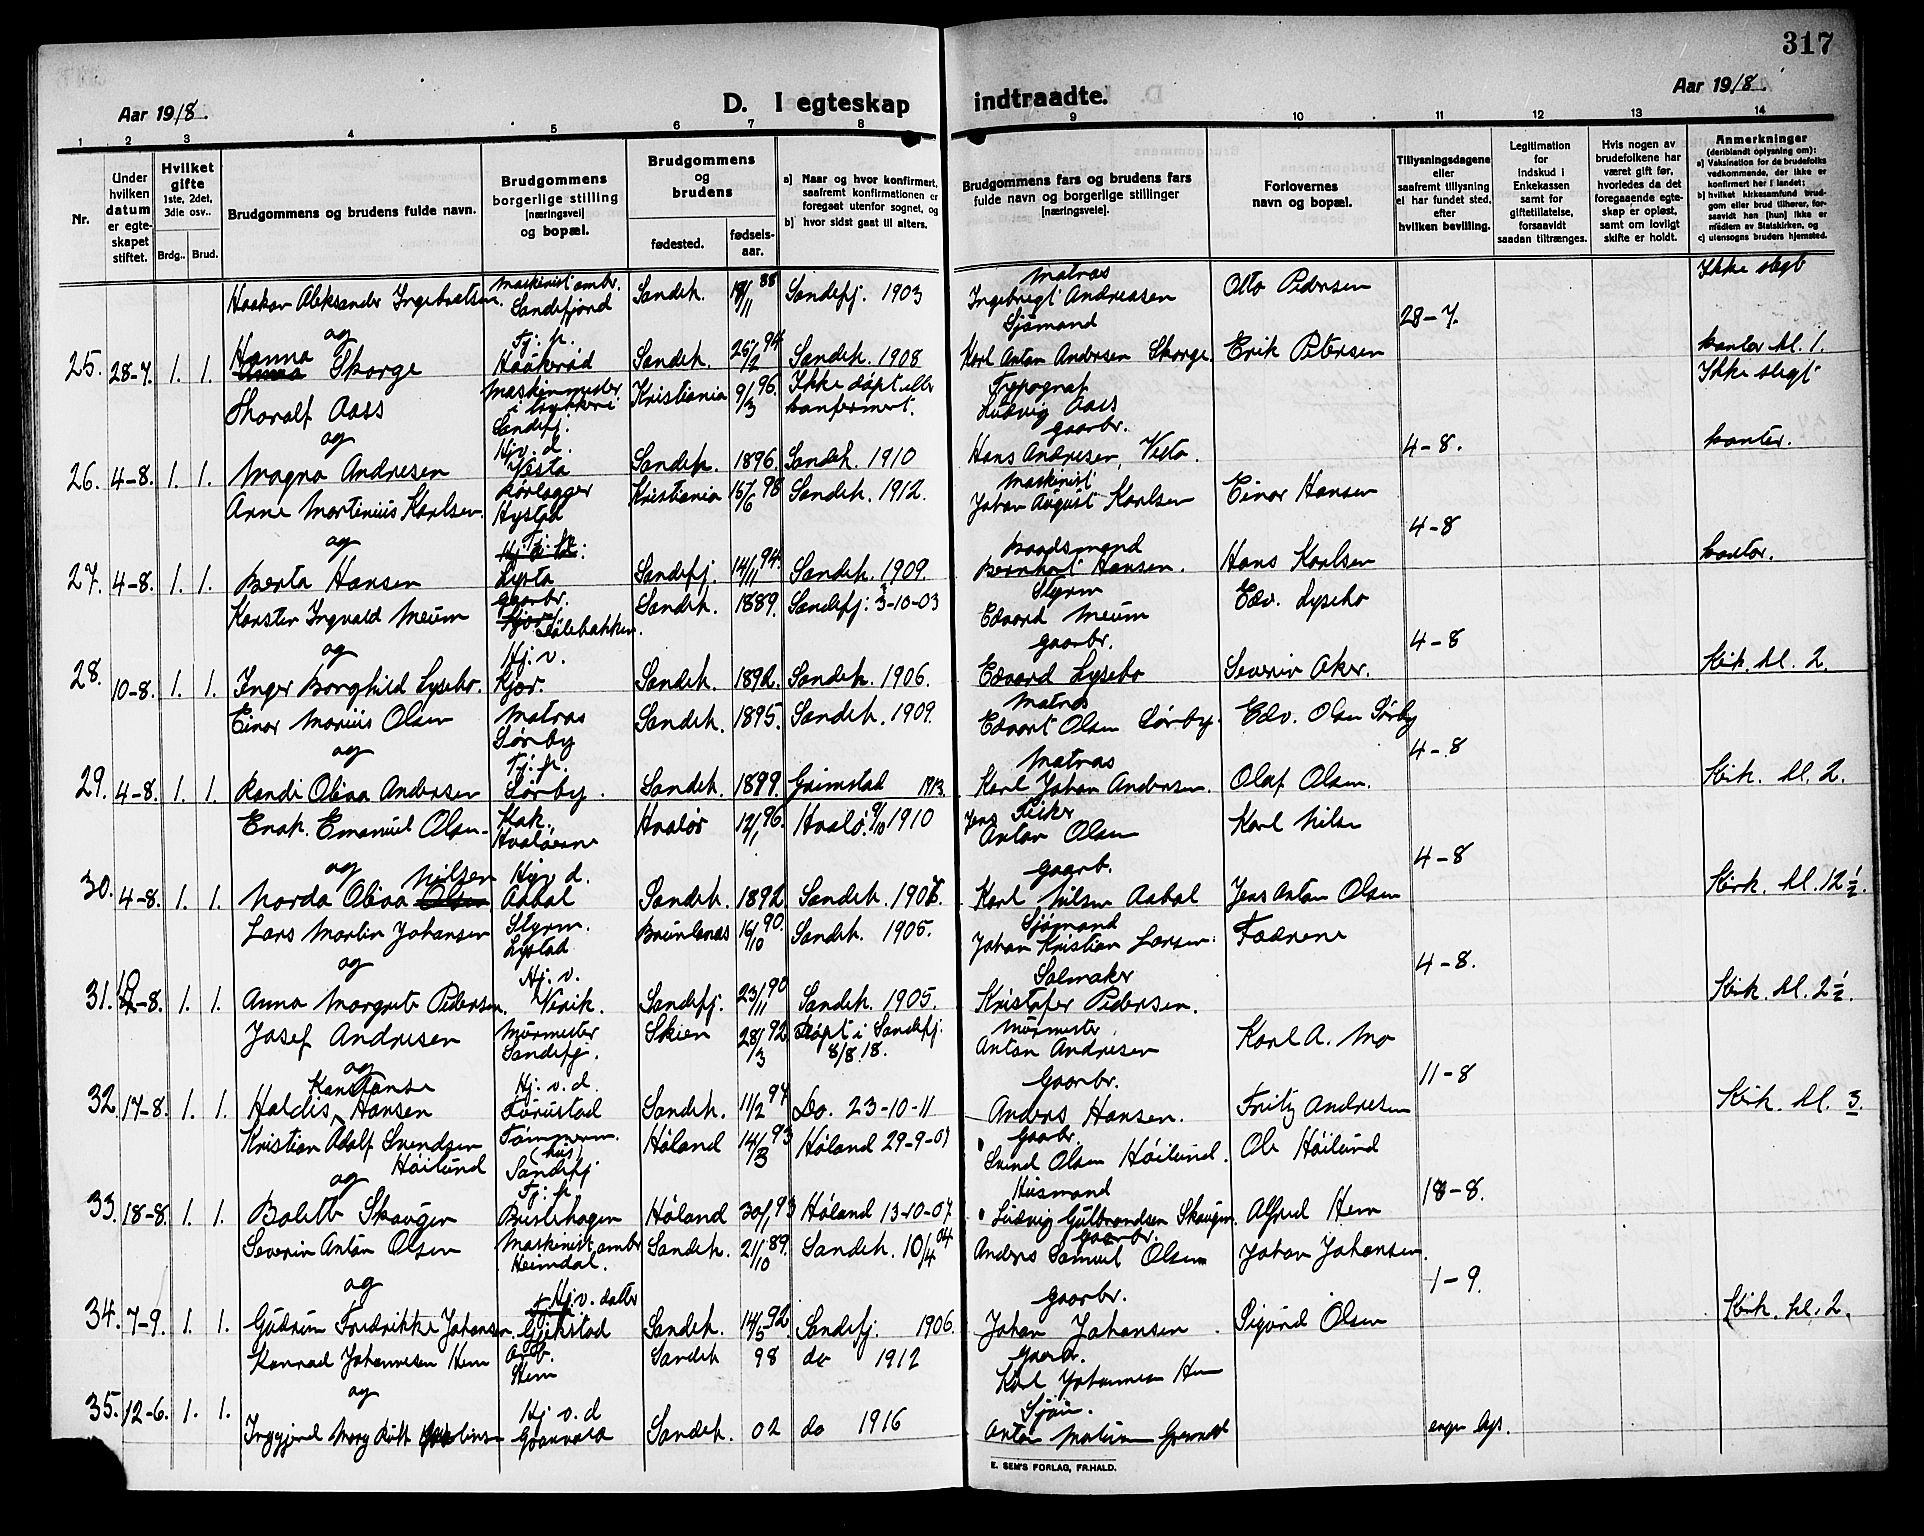 317
Aar 1918.
D. I egteskap indtraadte.
Aar 1918.
1 2 3 4 5 6 7 8 9 10 11 12 13 14
Nr.
Under hvilken datum er egteskapet stiftet.
Hvilket gifte 1ste, 2det, 3die osv..
Brdg. Brud.
Brudgommens og brudens fulde navn.
Brudgommens borgerlige stilling [næringsvei] og bopæl.
Brudgommens og brudens
fødested. fødselsaar.
a) Naar og hvor konfirmert, saafremt konfirmationen er foregaat utenfor sognet, og
b) hvor sidst gaat til alters.
Brudgommens fars og brudens fars fulde navn og borgerlige stillinger [næringsveie].
Forlovernes navn og bopæl.
Tillysningsdagene eller saafremt tillysning ei har fundet sted, efter hvilken bevilling.
Legitimation for indskud i Enkekassen samt for giftetillatelse, forsaavidt saadan tiltrænges.
Hvis nogen av brudefolkene har været gift før, hvorledes da det foregaaende egteskap er opløst, samt om lovligt skifte er holdt.
Anmerkninger (deriblandt oplysning om):
a) Vaksination for de brudefolks vedkommende, der ikke er konfirmert her i landet;
b) hvilket kirkesamfund brudgom eller brud tilhører, forsaavidt han [hun] ikke er medlem av Statskirken, og
c) utensogns bruders hjemsted.
Haakon Aleksander Ingebretsen. Maskinist ambr. Sandefjord Sandeh. 18/11 88 Sandefj. 1903 Matros Ingebregt Andreasen Otto Pedersen Ikke slegt
og 28-7.
25. 28-7. 1. 1. Hanna Skorge Tj. p. Haukerød Sandeh. 25/2 94 Sandeh. 1908 Sjømand Karl Anton Andersen Skorge. Erik Petersen kontor kl. 1.
Thoralf Aass Maskinmester i trykkeri Sandefj. Kristiania 9/3 96. Ikke døpt eller konfermert. Typograf Ludvig Aass Ikke slegt
og 4-8.
26. 4-8. 1. 1. Magna Andresen Hjv. d. Vesta Sandeh. 1896. Sandeh. 1910 gaarbr. Hans Andresen, Vesta. kontor.
Arne Martinius Karlsen. Rørlægger Nystad Kristiania 15/6 98 Sandeh. 1912. Maskinist Johan August Karlsen Einar Hansen
og 4-8
27. 4-8. 1. 1. Berta Hansen Tj. p. Sandefj. 14/11 94. Sandeh. 1909. Baadsmand Bernhart Hansen. Hans Karlsen kontor.
Karsten Ingvald Meum gaarbr. Sandeh. 1889. Sandefj: 3-10-03 Styrm Edvard Meum Edv. Lysebo
og 4-8
28. 10-8. 1. 1. Inger Borghild Lysebo. Hj. v. Kjør. Sandeh. 1892. Sandeh. 1906. gaarbr. Edvard Lysebo Severin Aker. Kirk. kl. 2
Einar Marius Olsen Matros Sørby Sandeh. 1895. Sandeh. 1909. Matros Edvart Olsen Sørby. Edv. Olsen Sørby
og 4-8
29. 4-8. 1. 1. Randi Oliva Andersen Tj. p. Sørby. Sandeh. 1899. Grimstad 1913. Matros Karl Johan Andersen. Olaf Olsen. Kirk. kl. 2.
Enok. Emanuel Olsen. Kok. Hvaløerne Hvaløer 12/1 96. Hvalø. 9/10 1910 Fisker Jens Anton Olsen Karl Nilsen
og 4-8
30. 4-8. 1. 1. Norda Oliva Nilsen Hjv d. Aabol Sandeh. 1892 Sandeh. 1907. gaarb. Karl Nilsen Aabol Jens Anton Olsen Kirk. kl. 12½.
Lars Martin Johansen Styrm. Lystad Brunlanes 16/10 90. Sandeh. 1905. Sjømand Johan Kristian Larsen. Fædrene
og 4-8.
31. 10-8. 1. 1. Anna Margrete Pedersen. Hj. v. Virik. Sandefj. 23/11 90 Sandeh. 1905. Salmaker Kristofer Pedersen. Kirk. kl. 2½.
Josef Andresen Murmester Sandefj. Skien 28/3 92. Døpt i Sandefj. 8/8.18. Murmester Anton Andresen Karl A. Mo
og 11-8
32. 17-8. 1. 1. Haldis Konstanse Hansen Hj. v. d. Furustad Sandeh. 11/2 94 Do. 23-10-11 Gaarbr. Anders Hansen. Fritz Andresen Kirk. kl. 3.
Kristian Adolf Svendsen Høilund Tømmerm. (hus) Sandefj Høland 14/3 93 Høland 29-9-07 Gaarbr. Svend Olsen Høilund. Ole Høilund
og 18-8.
33. 18-8. 1. 1. Bolette Skaugen Tj. p. Preståhagen Høland 30/1 93 Høland 13-10-07 Husmand Ludvig Gulbrandsen Skaugen. Alfred Hem
Severin Anton Olsen Maskinist ambr. Heimdal. Sandeh. 21/10 89. Sandeh. 10/4 04 gaarbr. Anders Samuel Olsen Johan Johansen.
og 1-9.
34. 7-9. 1. 1. Gudrun Fredrikke Johansen. Hj. v. datter Gjekstad Sandeh. 14/5 92. Sandefj. 1906. gaarbr. Johan Johansen. Sigurd Olsen Kirk. kl. 2.
Konrad Johannesen Hem Arb. Hem Sandeh 98 do 1912 Gaarbr. Karl Johannesen Hem
og
35. 12-6. 1. 1. Hj v. d Sandeh. 02 do 1916 Sjøm. Anton
E. SEM'S FORLAG, FR.HALD.